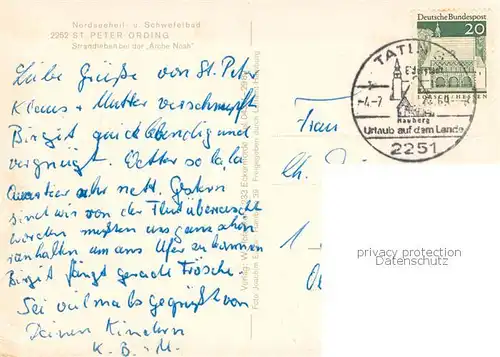 Nordseeheil- u. Schwefelbad
2252 ST. PETER ORDING
Strandleben bei der „Arche Noah"
Liebe Grüße von St. Peter
Klaus + Mutter verschnupft
Birgit quicklebendig und
vergnügt. Wetter so la la
Quartier sehr nett. Gestern
sind wir von der Flut überrascht
worden mußten uns ganz schön
ranhalten um ans Ufer zu kommen
Birgit fängt gerade Frösche.
Sei vielmals gegrüßt von
Deinen Kindern
K. B. + M.
Deutsche Bundespost
20
TATING
Hauberg
Urlaub auf dem Lande
2251
Frau
privacy protection
Datenschutz